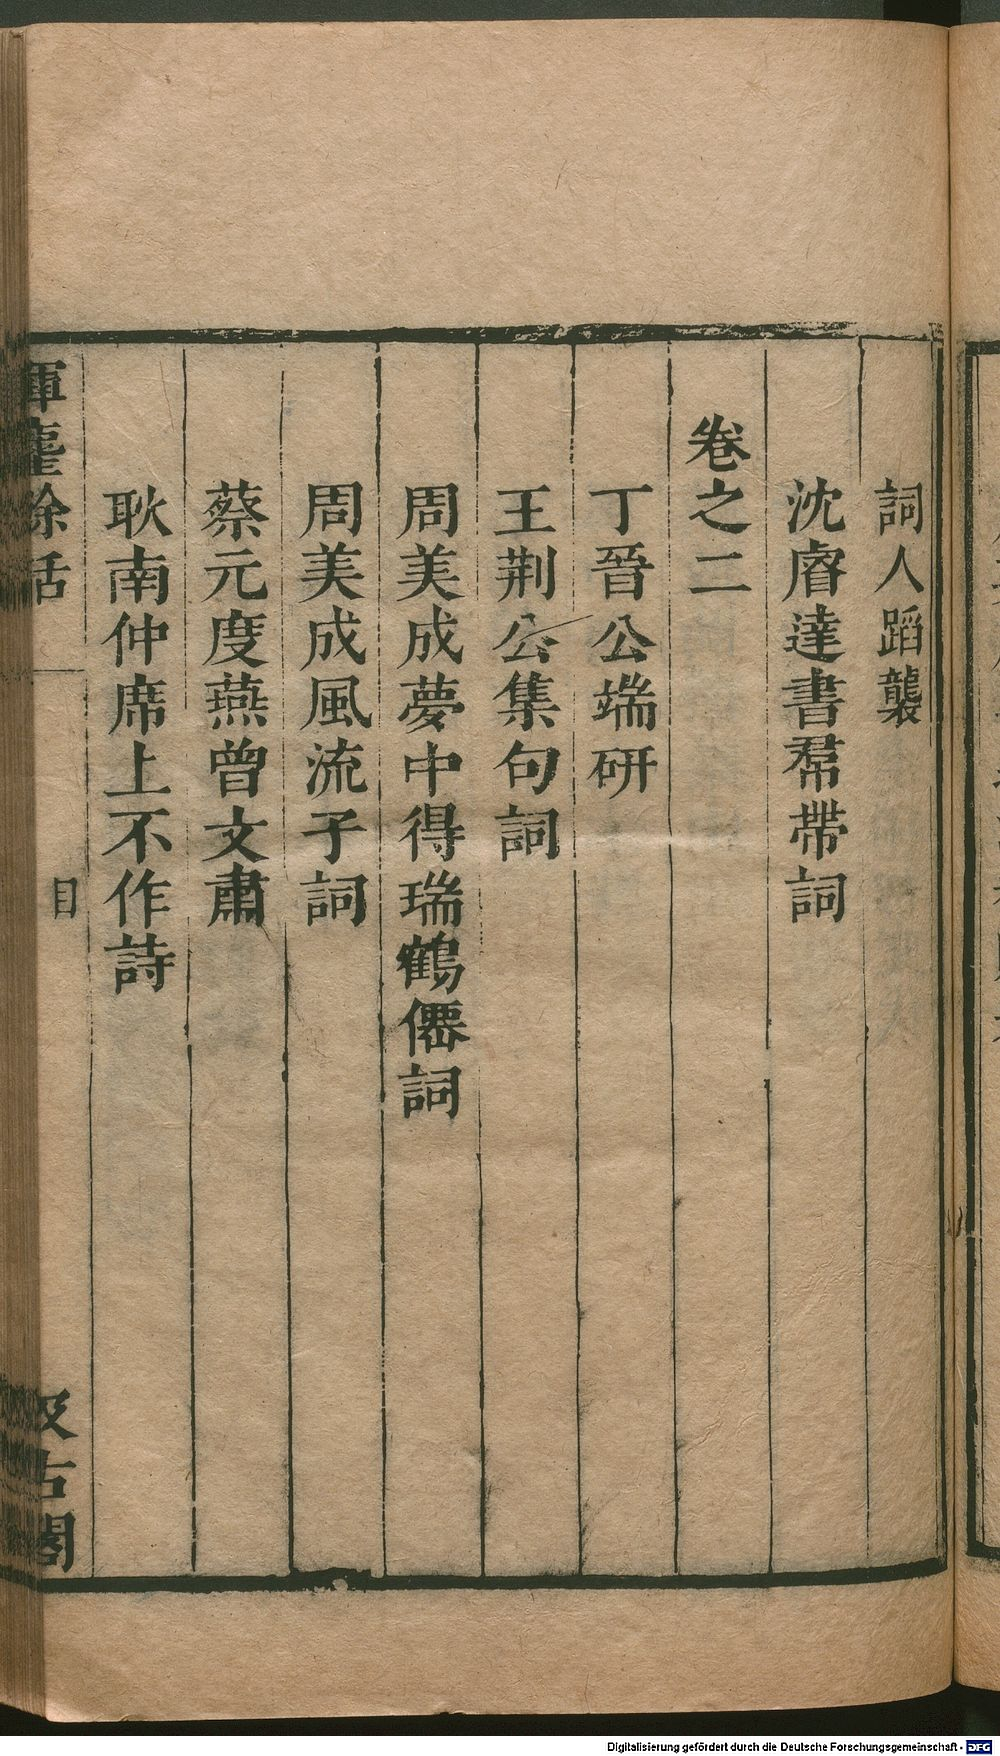 詞人蹈襲
沈睿達書羣帶詞
卷之二
丁晉公端研
王荆公集句詞
周美成夢中得瑞鶴僊詞
周美成風流子詞
蔡元度燕曾文肅
耿南仲席上不作詩
揮麈餘話
目
汲古閣
Digitalisierung gefördert durch die Deutsche Forschungsgemeinschaft - DFG